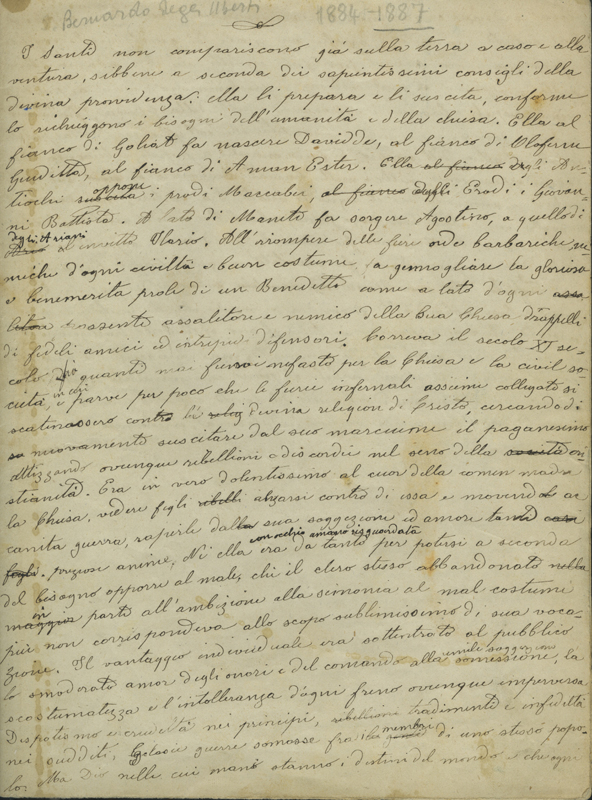 Bernardo degli Uberti 1884-1887
I Santi non compariscono già sulla terra a caso e alla
ventura, sibbene a seconda dei sapientissimi consigli della
divina provvidenza: ella li prepara e li suscita, conforme
lo richieggono i bisogni dell'umanità e della chiesa. Ella al
fianco di Goliat fa nascere Davidde, al fianco di Oloferne
Giuditta, al fianco di Aman Ester. Ella al fianco degli An-
tiochi suscita oppone i prodi Maccabei, al fianco degli Erodi i Giovan-
ni Battista. A lato di Manete fa sorgere Agostino, a quello di
Ario degli Ariani l'invitto Ilario. All'irrompere delle fiere orde barbariche, ne-
miche d'ogni civiltà e buon costume fa germogliare la gloriosa
e benemerita prole di un Benedetto come a lato d'ogni
assalitore e nemico della sua Chiesa drappelli
di fedeli amici ed intrepidi difensori. Correva il secolo XI se-
colo quanto mai nefasto per la Chiesa e la civil so-
cietà in cui parve per poco che le furie infernali assieme collegate si
scatenassero contro la divina religion di Cristo, cercando di
nuovamente suscitare dal suo marciume il paganesimo
attizzando ovunque ribellioni e discordie nel seno della società cri-
stianità. Era in vero dolentissimo al cuor della comun madre
la Chiesa, vedere figli ribelli alzarsi contro di essa e moverle ac
canita guerra, rapirle dalla sua soggezione ed amore tante
figli preziose anime. Nè ella con occhio amaro risguardata era da tanto per potersi a seconda
del bisogno opporre al male, chè il clero stesso abbandonato nella
maggior parte all'ambizione alla simonia al mal costume
più non corrispondeva allo scopo sublimissimo di sua voca-
zione. Il vantaggio individuale era sottentrato al pubblico
lo smodorato amor degli onori e del comando alla umile soggezione somissione, la
scostumatezza e l'intolleranza d'ogni freno ovunque imperversa
Dispotismo e crudeltà nei principi, ribellione tradimenti e infedeltà
nei sudditi, Gelosie guerre somosse fra le membri di uno stesso popo-
lo; Ma Dio nelle cui mani stanno i destini del mondo e che ogni